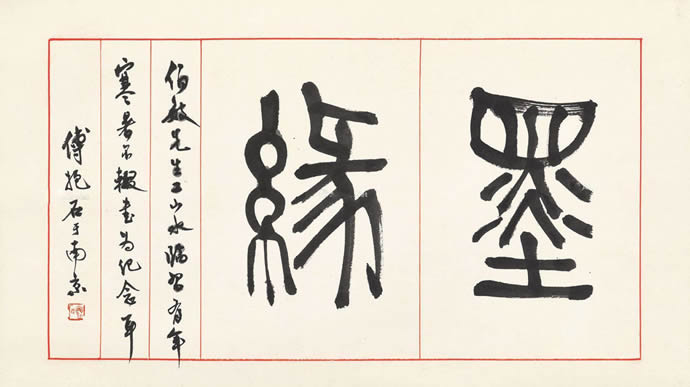 墨
緣
伯敏先生工山水臨習有年
寒暑不輟書為紀念耳
傅抱石于南京